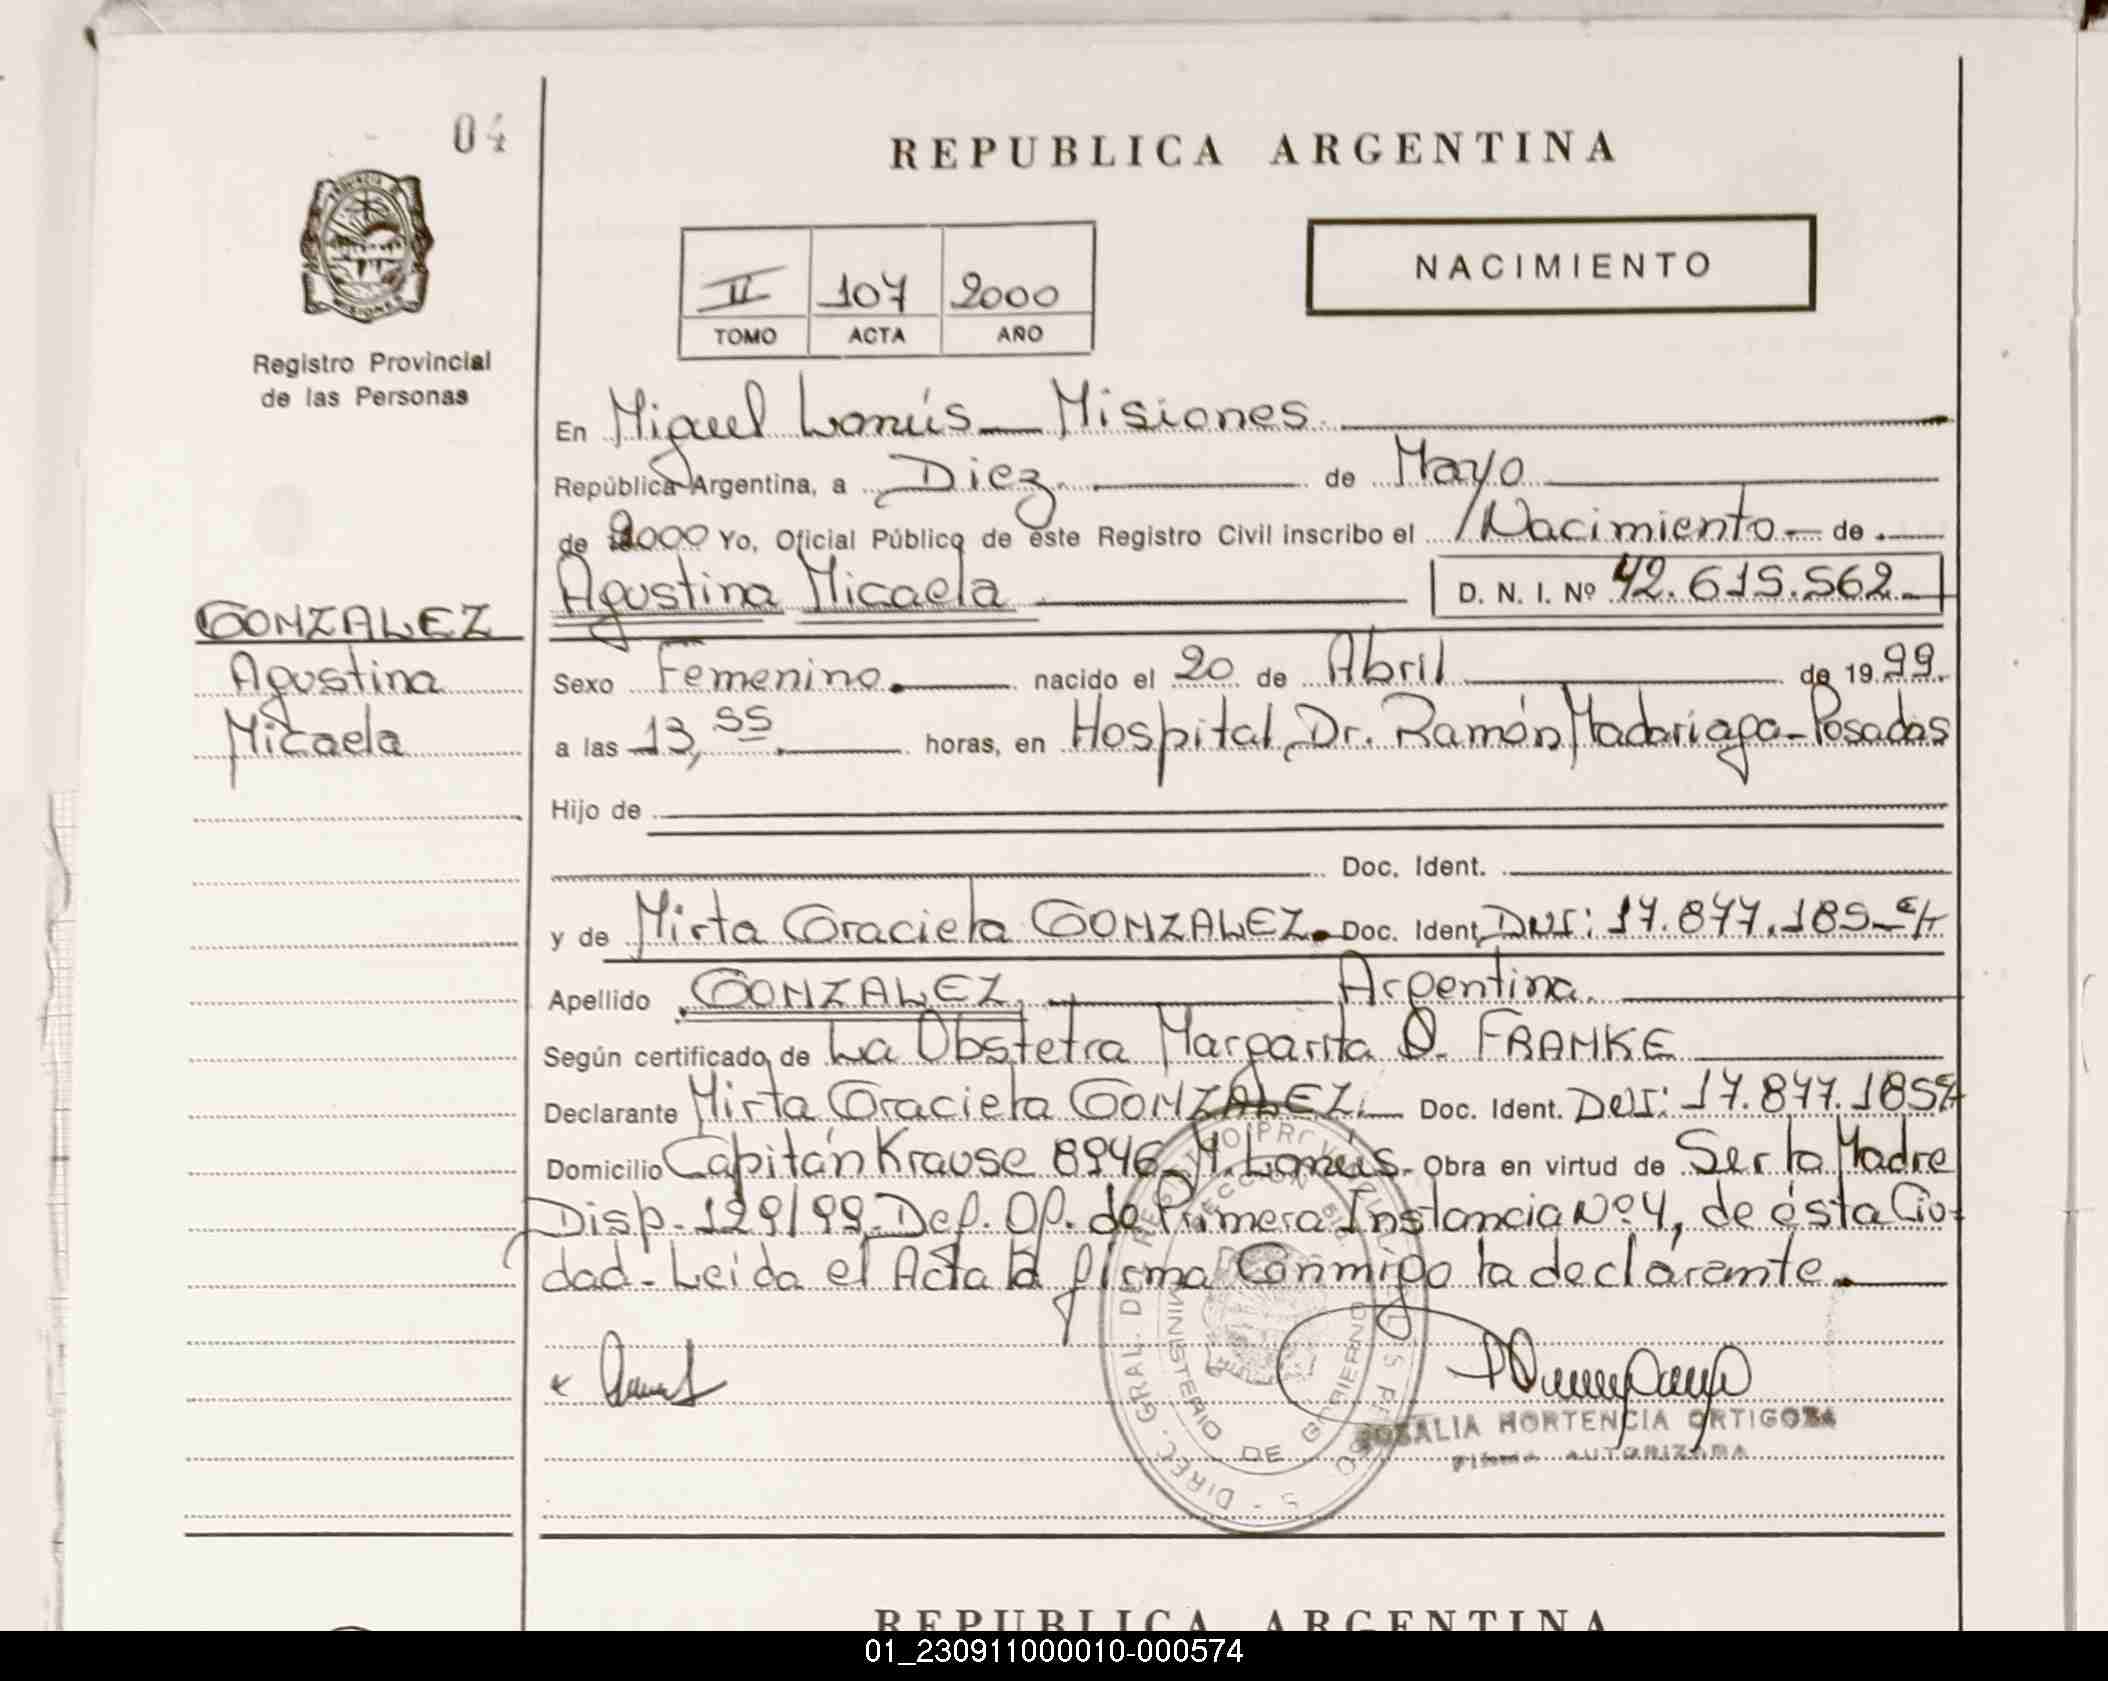 04
REPUBLICA ARGENTINA
NACIMIENTO
II 107 2000
TOMO ACTA AÑO
Registro Provincial
de las Personas
En Miguel Lanús - Misiones.
República Argentina, a Diez. de Mayo
de 2000 Yo, Oficial Público de este Registro Civil inscribo el Nacimiento - de
Agustina Micaela D. N. I. Nº 42.615.562.
GONZALEZ
Agustina
Micaela
Sexo Femenino. nacido el 20 de Abril de 1999.
a las 13,55 horas, en Hospital Dr. Ramón Madariaga - Posadas
Hijo de
Doc. Ident.
y de Mirta Graciela GONZALEZ. Doc. Ident. DNI: 17.877.185
Apellido GONZALEZ. Argentina.
Según certificado de La Obstetra Margarita O. FRANKE
Declarante Mirta Graciela GONZALEZ. Doc. Ident. DNI: 17.877.185
Domicilio Capitán Krause 8946 - M. Lanús. Obra en virtud de Ser la Madre
Disp. 129/99. Def. Of. de Primera Instancia Nº 4, de ésta Ciu-
dad - Leída el Acta la firma Conmigo la declarante.
DIREC. GRAL. DE REGISTRO PROVINCIAL DE LAS PERSONAS
MINISTERIO DE GOBIERNO
ROSALIA HORTENCIA ORTIGOZA
FIRMA AUTORIZADA
REPUBLICA ARGENTINA
01_230911000010-000574